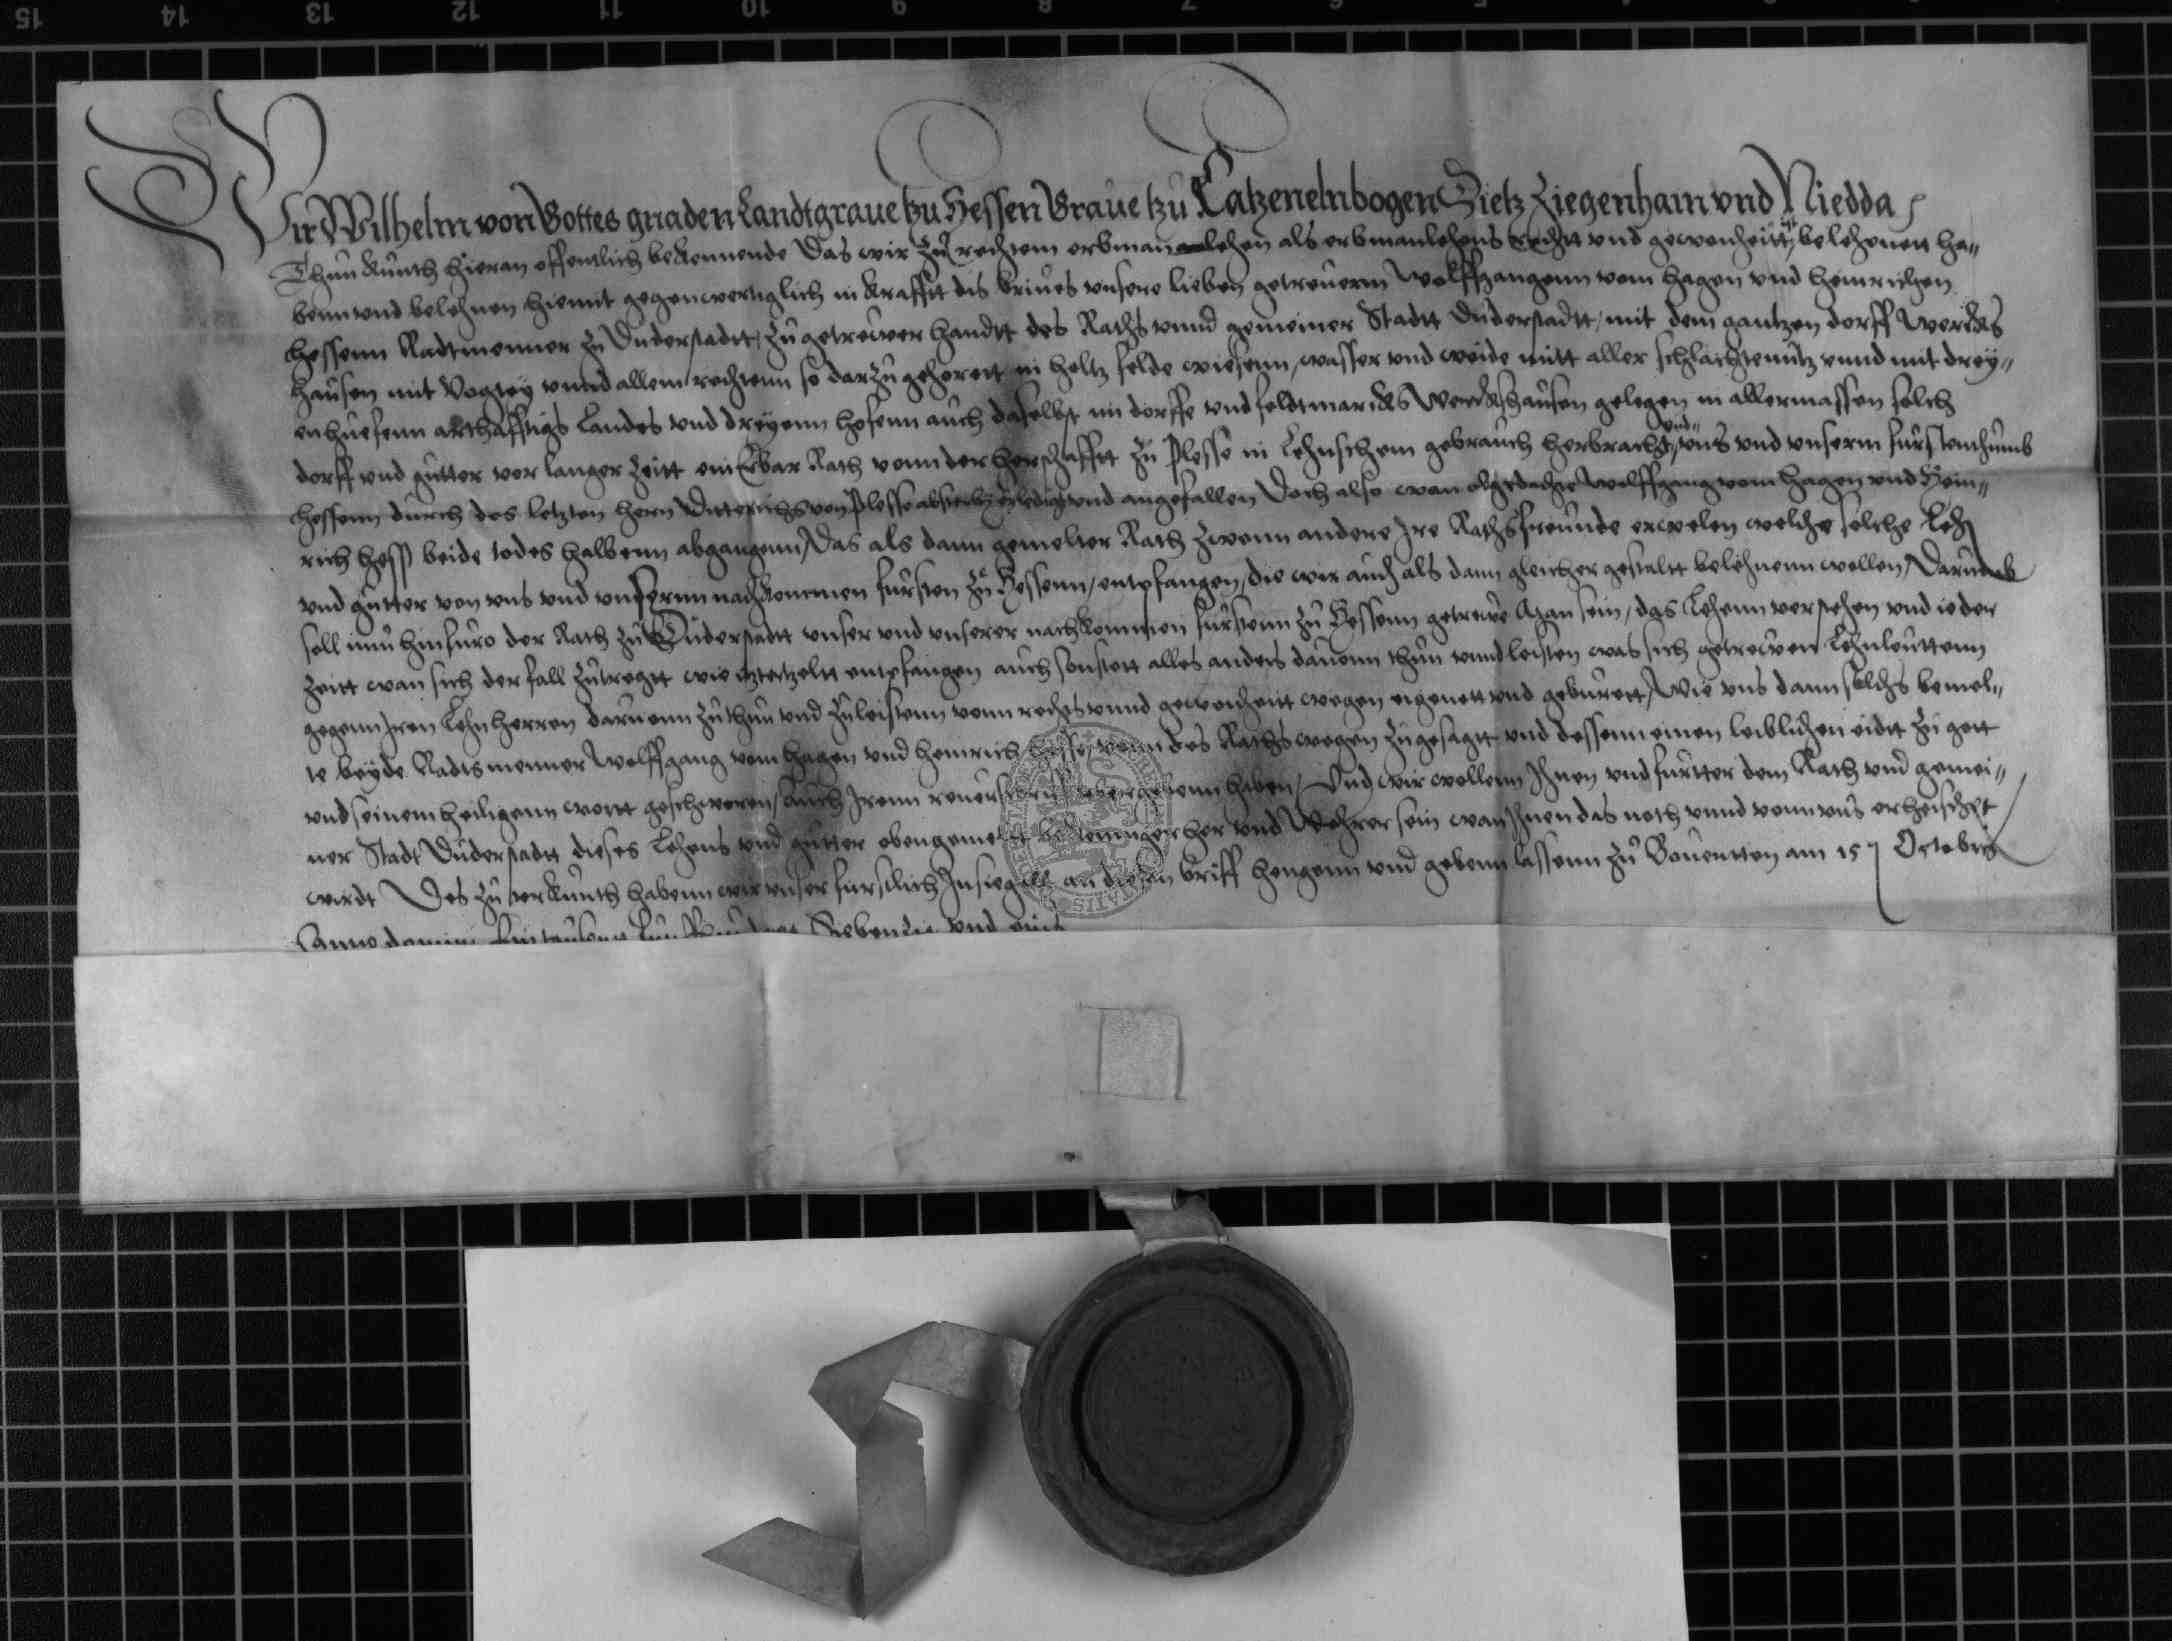 15 14 13 12 11 10 9 8 7 6 5 4
Wir Wilhelm von Gottes gnaden Landtgraue tzu Hessen Graue tzu Catzenelnbogen Dietz Ziegenhain vnd Niedda
Thun kunth hieran offentlich bekennende Das wir zu rechtem erbmanlehen als erbmanlehens recht vnd gewonheitt ist, belehenett ha„
benn vnd belehnen hiemit gegenwertiglich in krafft dis briues vnsere lieben getreuenn Wolffgangenn vom Hagen vnd Heinrichen
Hessenn Radtmenner zu Duderstadtt, zu getrewer handtt des Raths vnnd gemeiner Stadtt Duderstadtt, mit dem gantzen dorff Wercks
hausen mit Vogtey vnnd allem rechtenn so darzu gehorett in holtz felde wiesenn, wasser vnd weide mitt aller schlachtenutz vnnd mit drey„
en huefenn arthafftigs Landes vnd dreyenn hofenn auch daselbst im dorffe vnd feldtmarcks Werckshausen gelegen in allermassen solch
dorff vnd gutter vor langer zeitt ein Erbar Rath vonn der herschafftt zu Plesse in Lehnschem gebrauch herbracht, vnd„ vns vnd vnserm furstenthumb
Hessenn durch des letzten hern Ditterichs von Plesse absterben erledigt vnd angefallen Doch also wan obgedachte Wolffgang vom Hagen vnd Hein„
rich Hess beide todes halbenn abgangenn, Das als dann gemelter Rath zwenn andere Ire Rathsfreunde erwelen welche solche Lehn
vnd gutter von vns vnd vnsernn nachkommen fursten zu Hessenn, entpfangen, die wir auch als dann gleicher gestaltt belehnenn wollen, Darumb
soll inn hinfuro der Rath zu Duderstadtt vnser vnd vnserer nachkommen furstenn zu Hessenn getrewe Man sein, das Lehenn verstehen vnd ieder
Zeitt wan sich der fall zutregtt wie itztertzeltt entpfangen auch sonstett alles anders dauonn thun vnnd leisten was sich getrewen Lehnleuttenn
gegenn Iren Lehnherren daruonn zuthun vnd zuleistenn vonn rechts vnnd gewonheitt wegen eigenett vnd geburett, Wie vns dann solchs bemel„
te beyde Radtsmenner Wolffgang vom Hagen vnd Heinrich Hesse vonn des Raths wegen zugesagtt vnd dessenn einen leiblichen eidtt zu gott
vnd seinem heiligenn wortt geschworen, auch Irenn reuersbriff vbergebenn haben, Vnd wir wollenn Ihnen vnd furtter dem Rath vnd gemei„
ner Stadt Duderstadtt dieses Lehens vnd gutter obengemelt bekenniger her vnd Wehrer sein wan Ihnen das noth vnnd vonn vns erheischet
wirdt Des zu verkunth habenn wir vnser furstlich Insiegell an diesen briff hengenn vnd gebenn lassenn zu Bouentten am 15 Octobris
Anno domini Eintausent funffhundert Siebenzig vnd eins